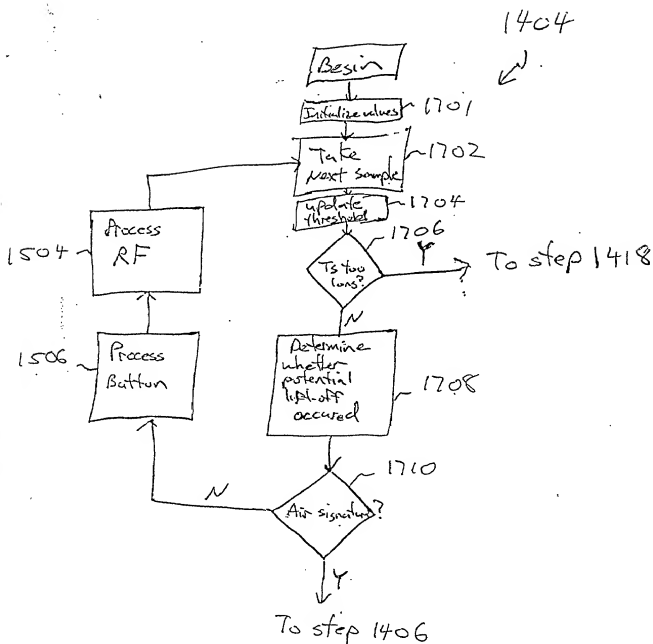 1404
Begin
Initialize values
1701
Take
Next sample
1702
update
threshold
1704
1706
Ts too
long?
Y
To step 1418
N
Determine
whether
potential
lift-off
occured
1708
1710
Air signature?
N
Y
To step 1406
Process
Button
1506
Process
RF
1504